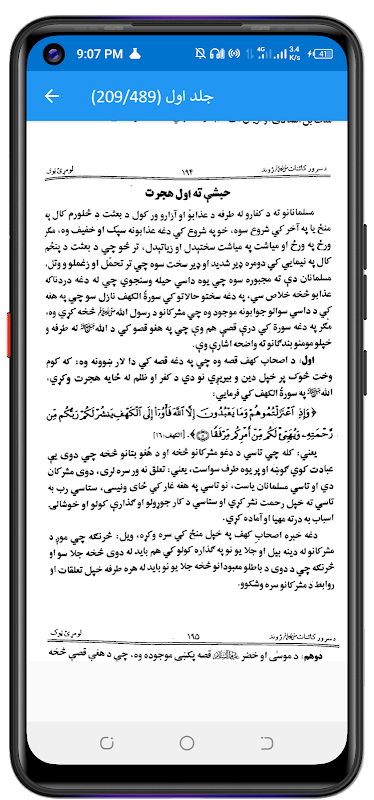 9:07 PM 4G 3.4 K/s 41
جلد اول (209/489)
د سرور کائنات ژوند ۱۹۴ لومړئ ټوک
حبشې ته اول هجرت
مسلمانانو ته د کفارو له طرفه د عذابوْ او آزارو ور کول د بعثت د څلورم کال په
منځ يا په آخر کې شروع سوه، خو په شروع کې دغه عذابونه سپک او خفيف وه، مگر
ورځ په ورځ او مياشت په مياشت سختېدل او زياتېدل، تر څو چي د بعثت د پنځم
کال په نيمايي کې دومره ډېر شديد او ډېر سخت سوه چي تر تحمّل او زغملو و وتل.
مسلمانان دې ته مجبوره سوه چي يوه داسي حيله وسنجوي چي له دغه دردناکه
عذابو څخه خلاص سي، په دغه سختو حالاتو کي سورةُ الکهف نازل سو چي په هغه
کي د داسي سوالو جوابونه موجود وه چي مشرکانو د رسول الله ﷺ څخه کړي وه،
مگر په دغه سورة کي درې قصې هم وې چي په هغو قصو کي د الله ﷻ له طرفه و
خپلو مومنو بندگانو ته واضحه اشارې وې.
اول: د اصحاب کهف قصه وه چي په دغه قصه کي دا لار ښوونه وه: که کوم
وخت څوک پر خپل دين و بيرېږي نو دي د کفر او ظلم له ځايه هجرت وکړي،
الله ﷻ په سورةُ الکهف کي فرمايي:
﴿وَإِذِ اعْتَزَلْتُمُوهُمْ وَمَا يَعْبُدُونَ إِلَّا اللَّهَ فَأْوُوا إِلَى الْكَهْفِ يَنشُرْ لَكُمْ رَبُّكُم مِّن
رَّحْمَتِهِ وَيُهَيِّئْ لَكُم مِّنْ أَمْرِكُم مِّرْفَقًا ۝﴾ [الکهف: ۱۶]
يعني: کله چي تاسي د دغو مشرکانو څخه او د هُغو بتانو څخه چي دوی يې
عبادت کوي گوښه او پر يوه طرف سواست، يعني: تعلق نه ور سره لری، دوی مشرکان
دي او تاسي مسلمانان ياست، نو تاسي په هغه غار کي ځای ونيسی، ستاسي رب به
تاسي ته خپل رحمت نشر کړي او ستاسي د کار جوړولو او گذارې کولو او خوشالۍ
اسباب به درته مهيا او آماده کړي.
دغه خبره اصحابِ کهف په خپل منځ کي سره وکړه، ويل: څرنگه چي موږ د
مشرکانو له دينه بېل او جلا يو نو په گذاره کولو کي هم بايد له دوی څخه جلا سو او
څرنگه چي د دوی د باطلو معبودانو څخه جلا يو نو بايد له هره طرفه خپل تعلقات او
روابط د مشرکانو سره وشکوو.
د سرور کائنات ژوند ۱۹۵ لومړئ ټوک
دوهم: د موسٰی او خضر قصه پکښې موجوده وه، چي د هغې قصې څخه